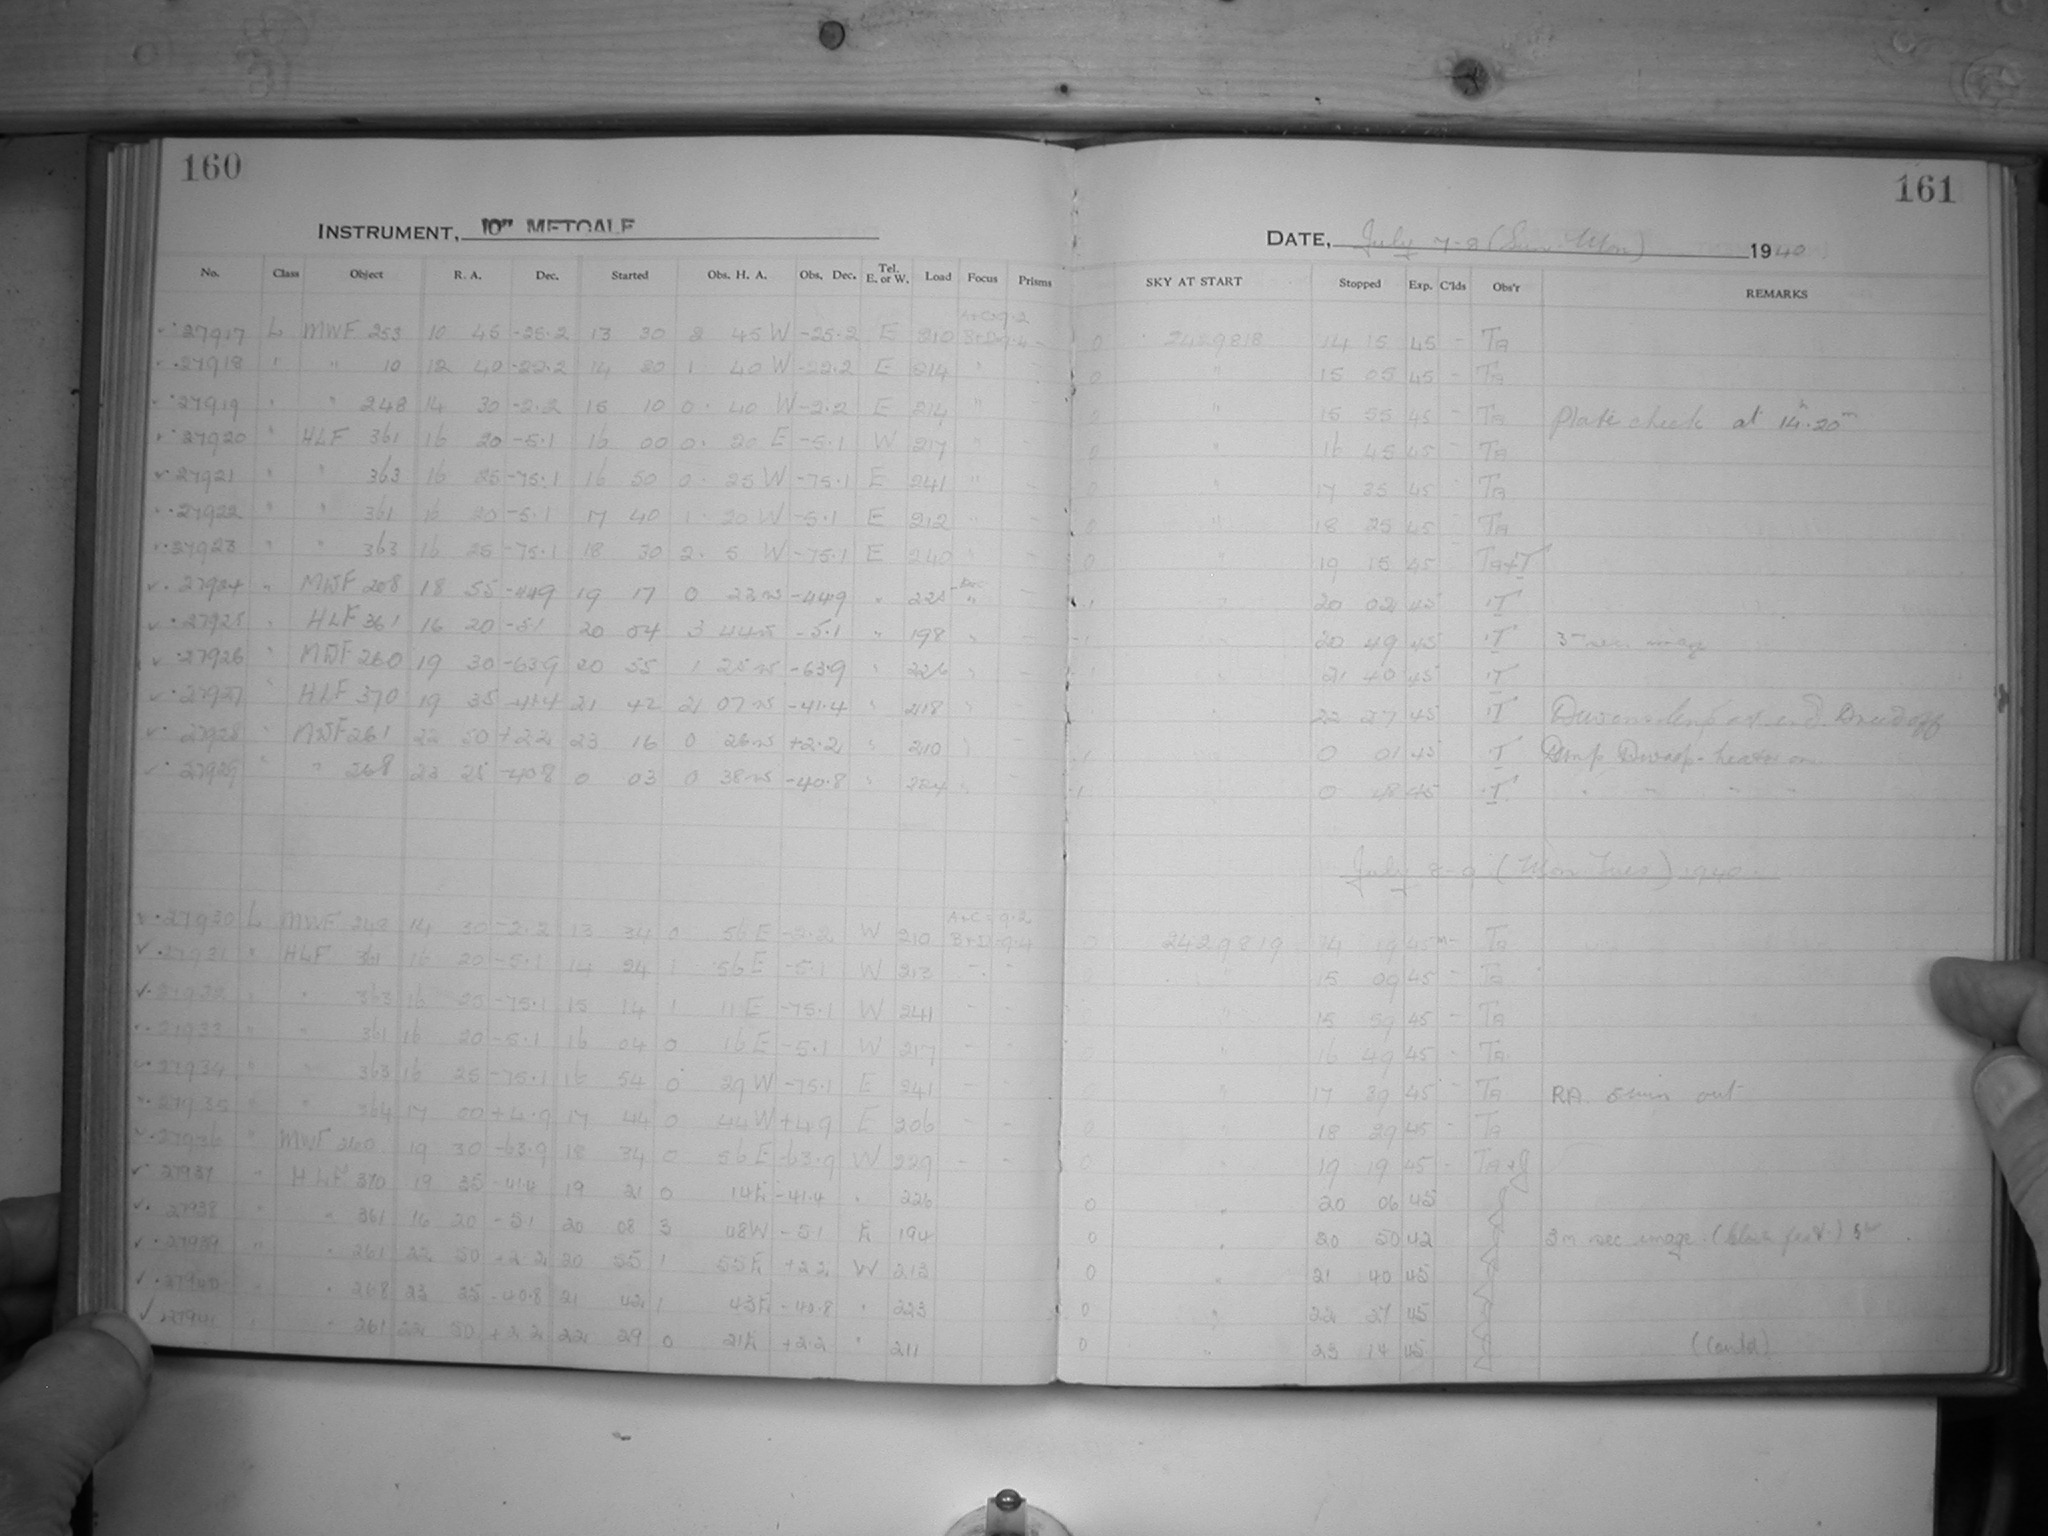 160
INSTRUMENT, 10" METCALF
No. Class Object R. A. Dec. Started Obs. H. A. Obs. Dec. Tel. E. or W. Load Focus Prisms
A+C=9.2
27917 L MWF 253 10 45 -25.2 13 30 2 45 W -25.2 E 210 B+D=9.4 -
27918 " " 10 12 40 -22.2 14 20 1 40 W -22.2 E 214 " -
27919 " " 248 14 30 -2.2 15 10 0 40 W -2.2 E 214 " -
27920 " HLF 361 16 20 -5.1 16 00 0 20 E -5.1 W 217 " -
27921 " " 363 16 25 -75.1 16 50 0 25 W -75.1 E 241 " -
27922 " " 361 16 20 -5.1 17 40 1 20 W -5.1 E 212 " -
27923 " " 363 16 25 -75.1 18 30 2 5 W -75.1 E 240 " -
27924 " MWF 208 18 55 -44.9 19 17 0 23 W -44.9 " 225 " -
27925 " HLF 361 16 20 -5.1 20 04 3 44 W -5.1 " 198 " -
27926 " MWF 260 19 30 -63.9 20 55 1 25 W -63.9 " 226 " -
27927 " HLF 370 19 35 -41.4 21 42 2 07 W -41.4 " 218 " -
27928 " MWF 261 22 50 +2.2 23 16 0 26 W +2.2 " 210 " -
27929 " " 268 23 25 -40.8 0 03 0 38 W -40.8 " 224 "
A+C=9.2
27930 L MWF 248 14 30 -2.2 13 34 0 56 E -2.2 W 210 B+D=9.4
27931 " HLF 361 16 20 -5.1 14 24 1 56 E -5.1 W 213 - -
27932 " " 363 16 25 -75.1 15 14 1 11 E -75.1 W 241 - -
27933 " " 361 16 20 -5.1 16 04 0 16 E -5.1 W 217 - -
27934 " " 363 16 25 -75.1 16 54 0 29 W -75.1 E 241 - -
27935 " " 364 17 00 +4.9 17 44 0 44 W +4.9 E 206 - -
27936 " MWF 260 19 30 -63.9 18 34 0 56 E -63.9 W 229 - -
27937 " HLF 370 19 35 -41.4 19 21 0 14 E -41.4 " 226
27938 " " 361 16 20 -5.1 20 08 3 48 W -5.1 E 194
27939 " " 261 22 50 +2.2 20 55 1 55 E +2.2 W 213
27940 " " 268 23 25 -40.8 21 42 1 43 E -40.8 " 223
27941 " " 261 22 50 +2.2 22 29 0 21 E +2.2 " 211
161
DATE, July 7-8 (Sun-Mon) 1940
SKY AT START Stopped Exp. C'lds Obs'r REMARKS
0 2429818 14 15 45 - Ta
0 " 15 05 45 - Ta
0 " 15 55 45 - Ta Plate check at 14h.20m
0 " 16 45 45 - Ta
0 " 17 35 45 - Ta
0 " 18 25 45 - Ta
0 " 19 15 45 Ta+T
1 20 02 45 T
1 20 49 45 T 3rd sec image
1 21 40 45 T
22 27 45 T
1 0 01 45 T heater on
1 0 48 45 T " " " "
July 8-9 (Mon Tues) 1940
0 2429819 14 19 45m - Ta
0 " 15 09 45 - Ta
" 15 59 45 - Ta
0 " 16 49 45 - Ta
0 " 17 39 45 - Ta RA. 5 min out
0 " 18 29 45 - Ta
0 " 19 19 45 - Ta+J
0 " 20 06 45
0 " 20 50 42 3m sec image
0 " 21 40 45
0 " 22 27 45
0 " 23 14 45 (Contd)